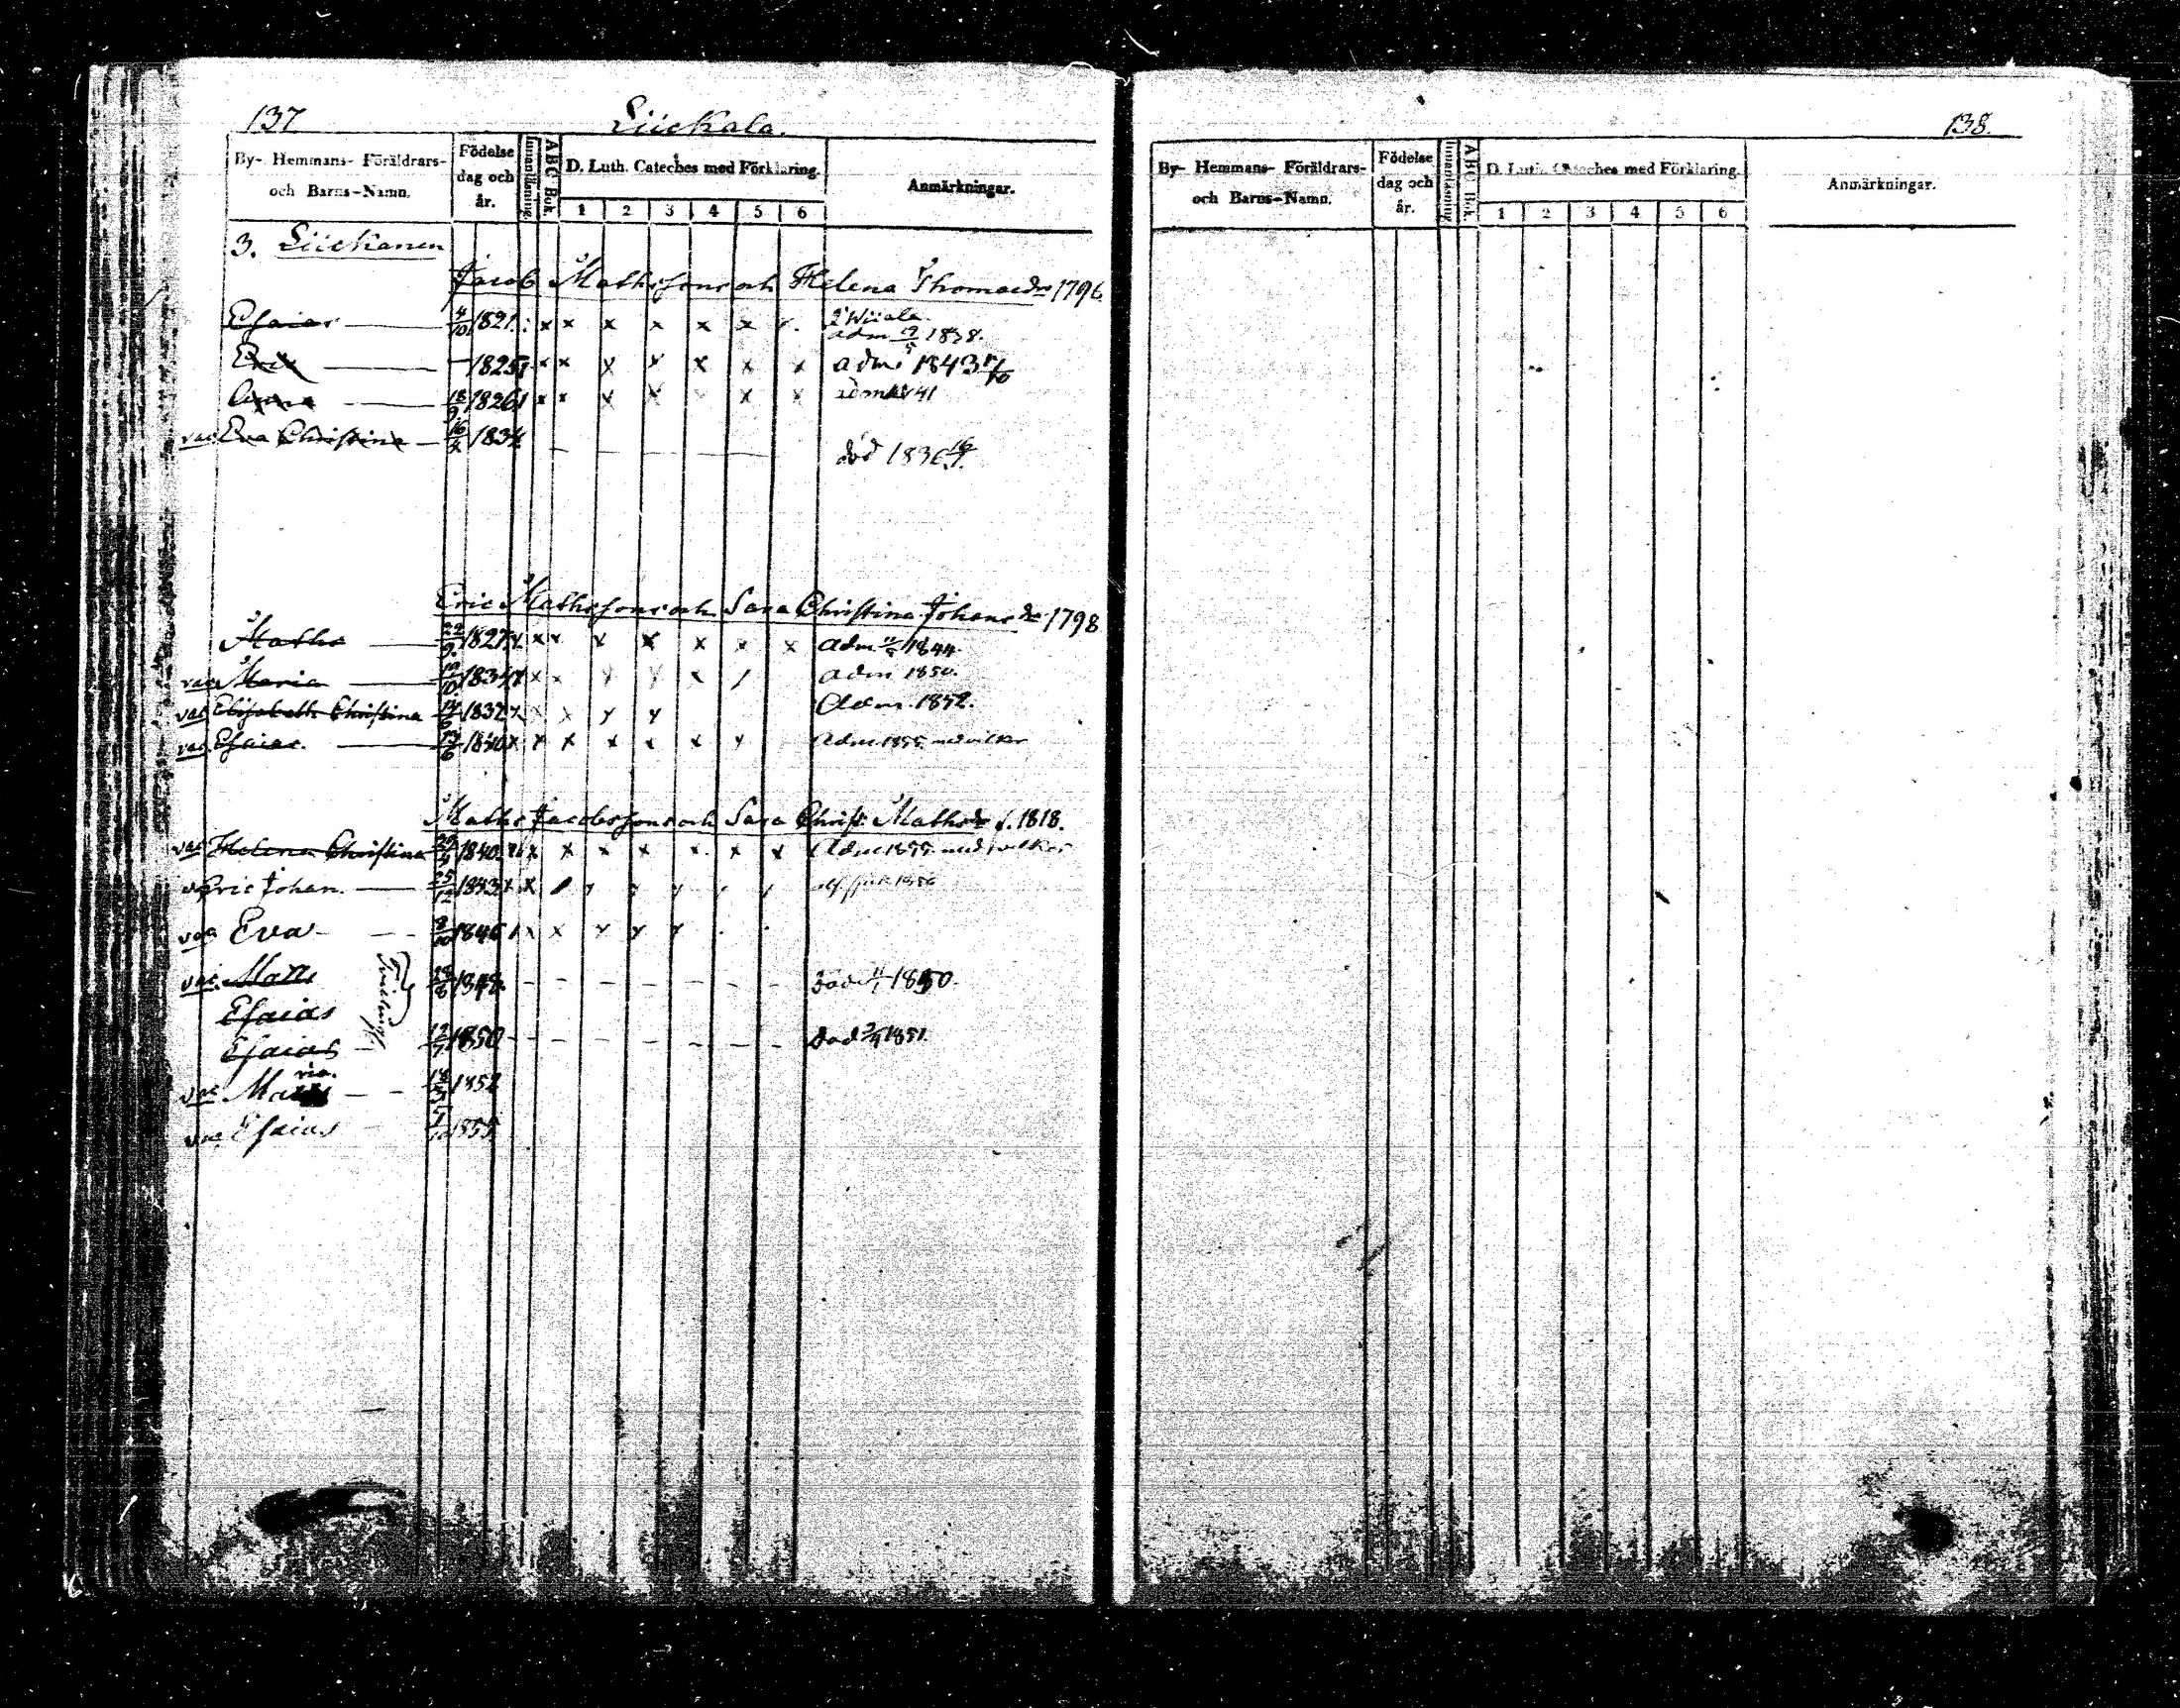 137 Liickala.
By- Hemmans- Föräldrars- och Barns-Namn. Födelse dag och år. Innanläsning. ABC Bok. D. Luth. Cateches med Förklaring. 1 2 3 4 5 6 Anmärkningar.
3. Liickanen
Jacob Mathsson och Helena Thomaedr 1796
Esaias 4/10 1821 x x x x x x adm 1838.
Eric 1825 x x x x x x x adm 1843
Anna 18/9 1826 x x x x x x
vac Eva Christina 16/4 1834 död 1836
Eric Mathsson och Sara Christina Johansdr 1798
Maths 22/9 1827 x x x x x x x Adm 1844
vac Maria 1834 x x adm 1850.
vac Elisabeth Christina 1837 Adm. 1852.
vac Esaias 1840 x x x x x x Adm. 1855
Maths Jacobsson och Sara Christ. Mathsdr f. 1818.
vac Helena Christina 1840 x x x x x x x Adm 1855
Eric Johan. 25/12 1843 x x
vac Eva 1846
vac. Matts 1848 Död 1850.
Esaias
Esaias 1850 Död 1851.
Tvillingar
vac Matts 1852
vac Esaias 1855
138.
By- Hemmans- Föräldrars- och Barns-Namn. Födelse dag och år. Innanläsning. ABC Bok. D. Luth. Cateches med Förklaring. 1 2 3 4 5 6 Anmärkningar.